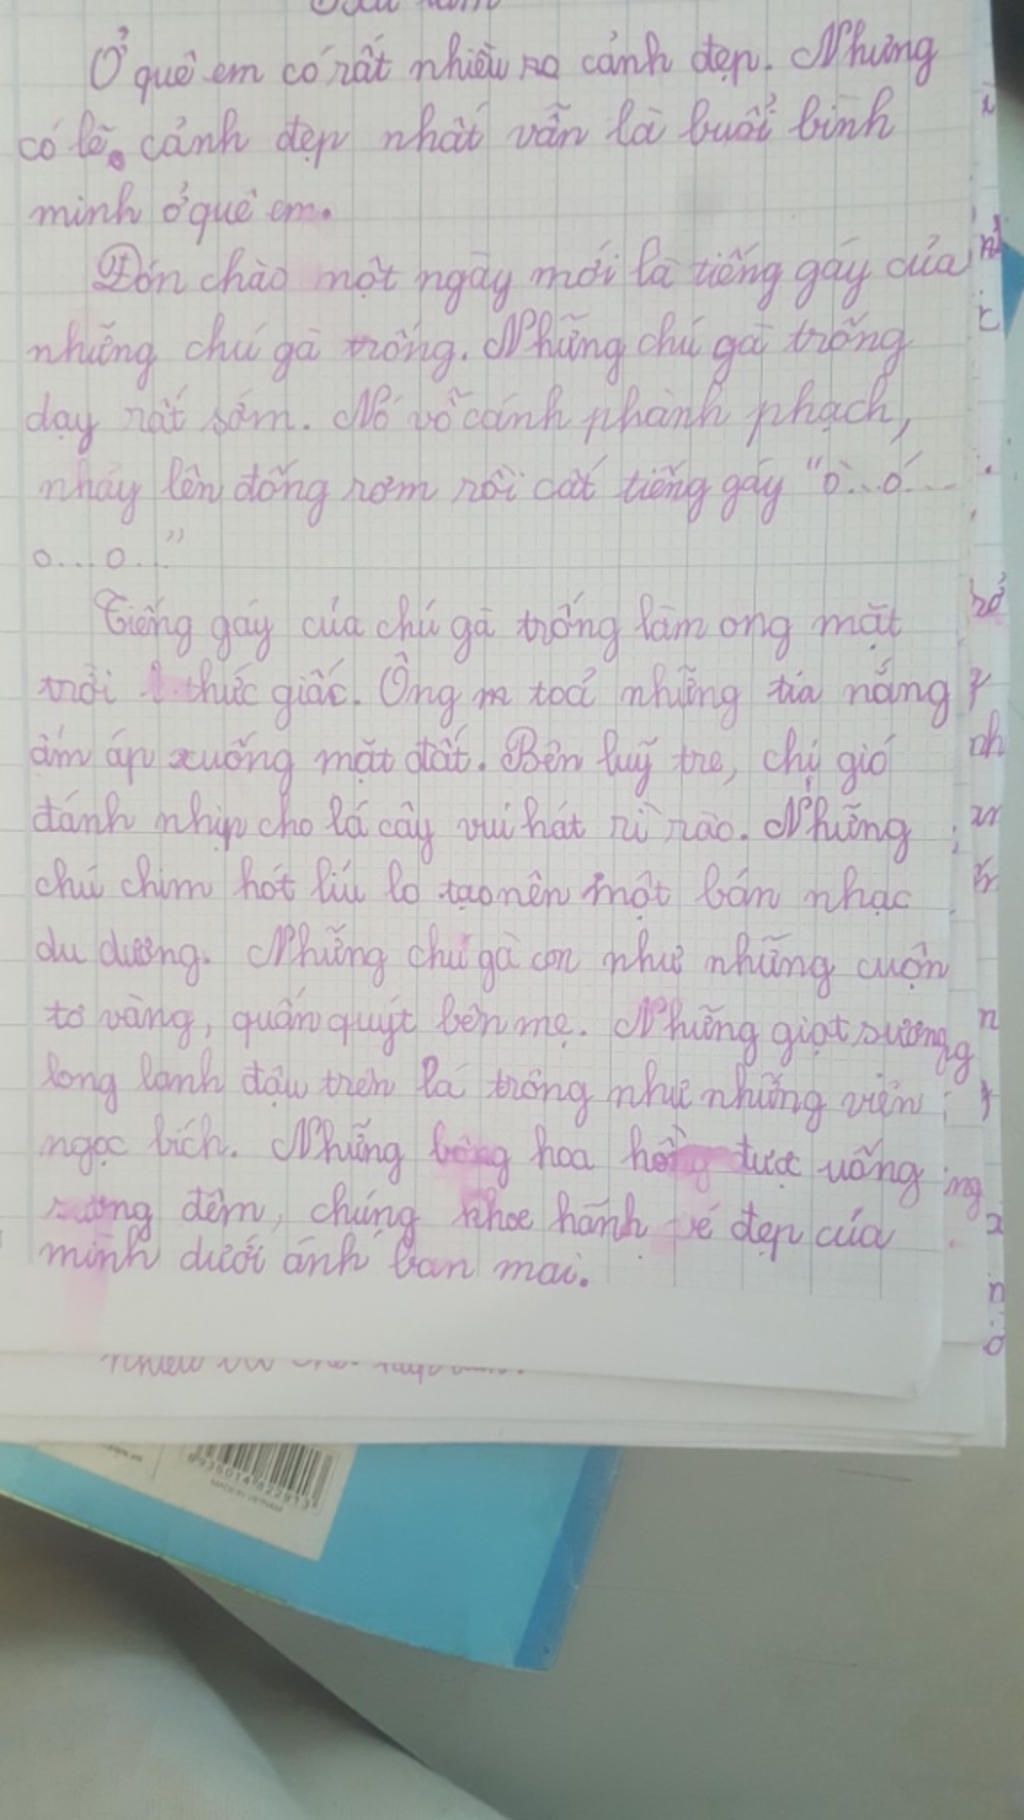 Ở quê em có rất nhiều cảnh đẹp. Nhưng
có lẽ cảnh đẹp nhất vẫn là buổi bình
minh ở quê em.
Đón chào một ngày mới là tiếng gáy của
những chú gà trống. Những chú gà trống
dạy rất sớm. Nó vỗ cánh phành phạch,
nhảy lên đống rơm rồi cất tiếng gáy "ò...ó...
o...o..."
Tiếng gáy của chú gà trống làm ong mặt
trời thức giấc. Ông toả những tia nắng
ấm áp xuống mặt đất. Bên luỹ tre, chị gió
đánh nhịp cho lá cây vui hát rì rào. Những
chú chim hót líu lo tạo nên một bản nhạc
du dương. Những chú gà con như những cuộn
tơ vàng, quấn quýt bên mẹ. Những giọt sương
long lanh đậu trên lá trông như những viên
ngọc bích. Những bông hoa hồng được uống
sương đêm, chúng khoe hãnh vẻ đẹp của
mình dưới ánh ban mai.
8935014822913
MADE IN VIETNAM